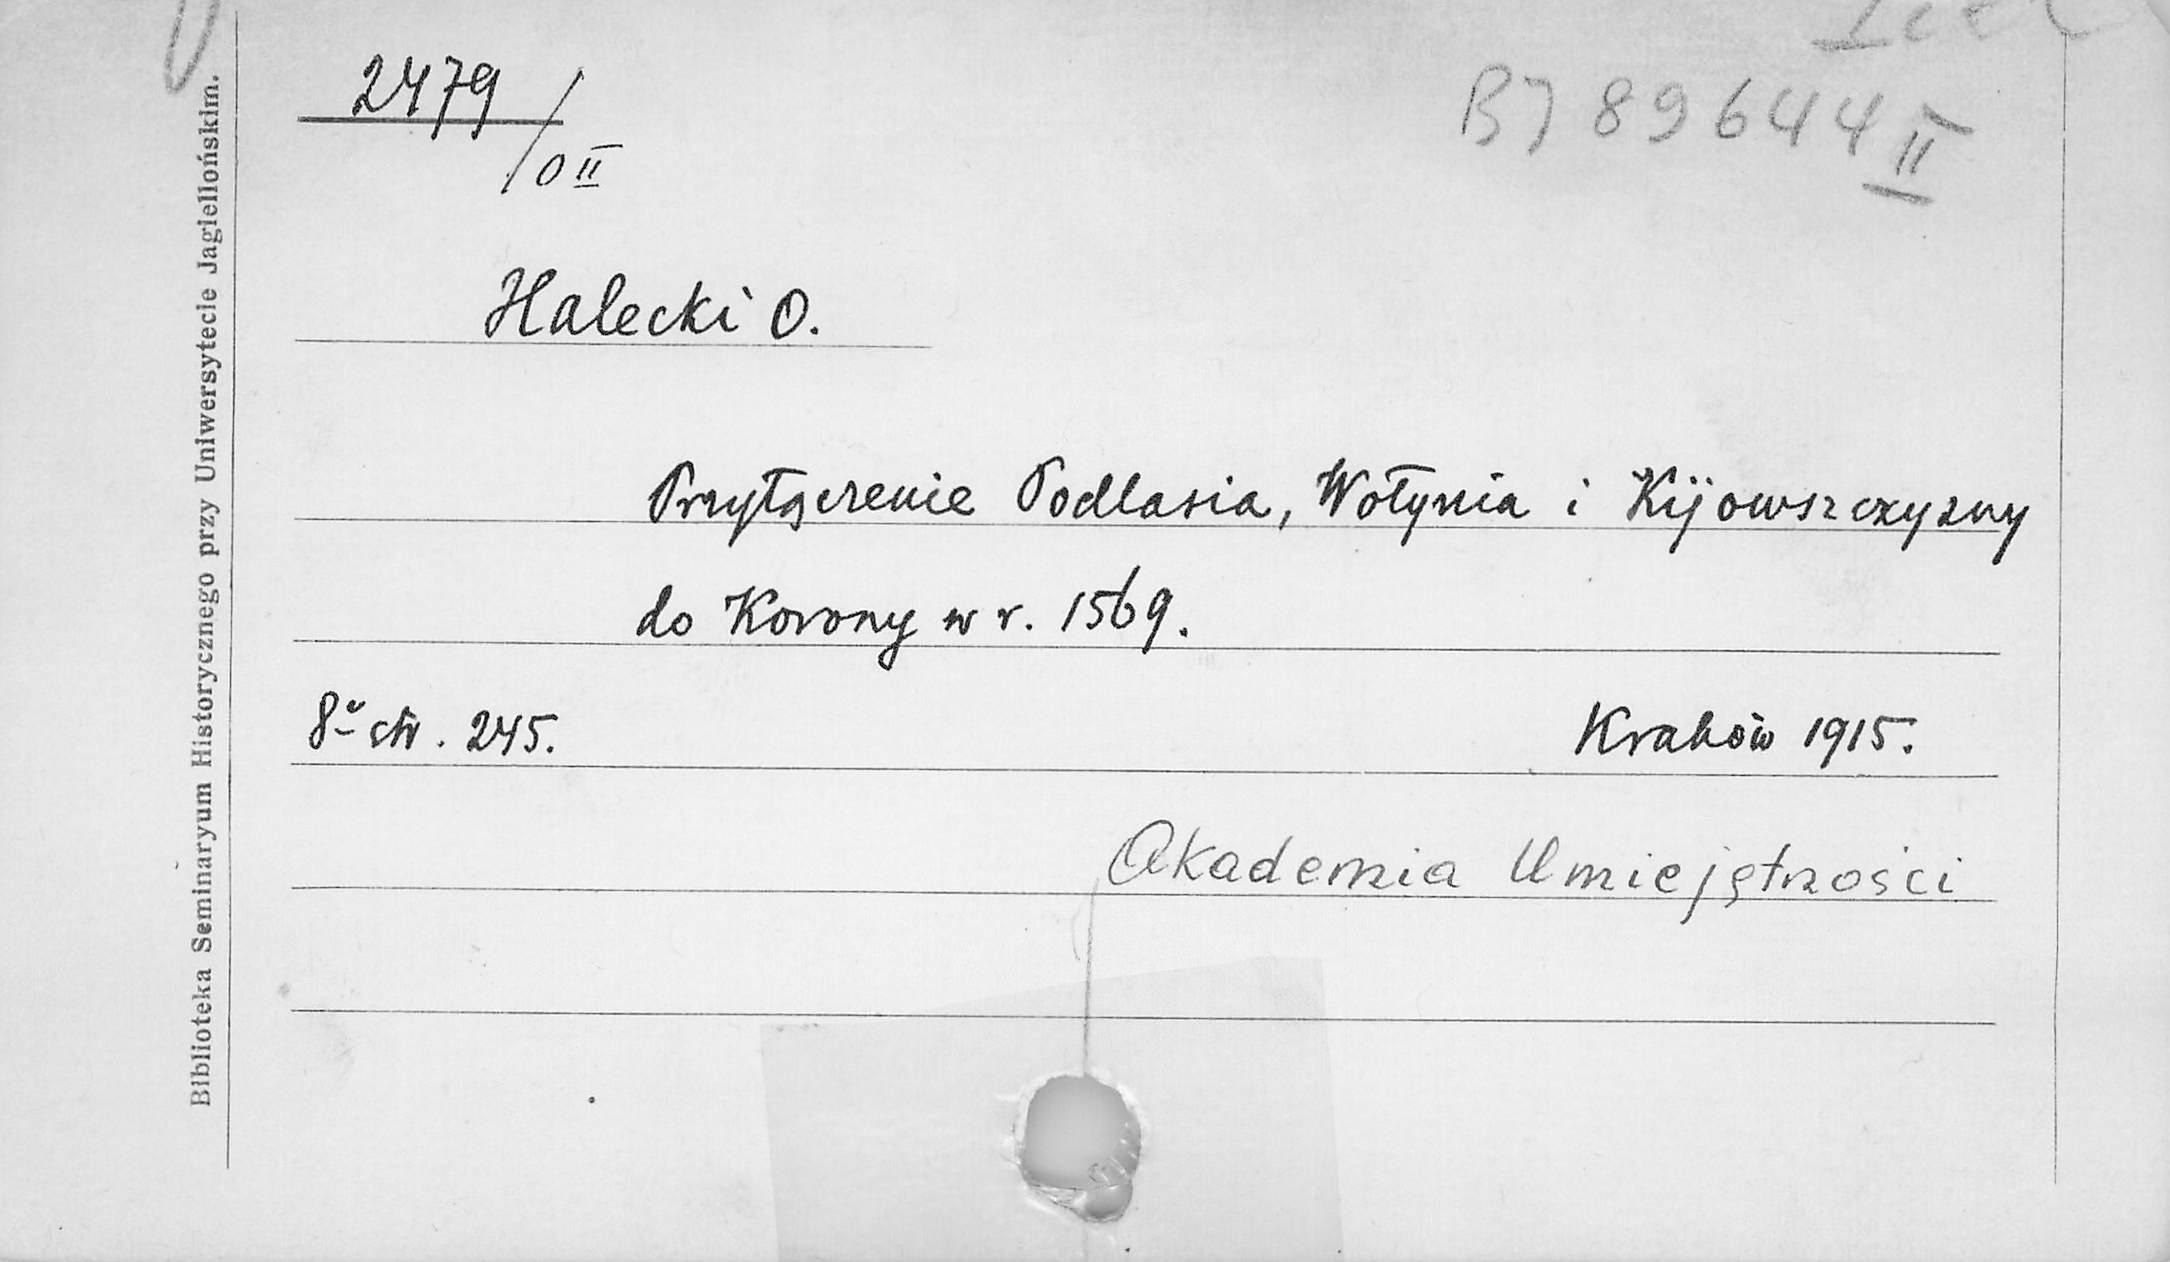 2479/OII
BJ 89644 II
Halecki O.
Przyłączenie Podlasia, Wołynia i Kijowszczyzny
do Korony w r. 1569.
8º str. 245.
Kraków 1915.
Akademia Umiejętności
Biblioteka Seminaryum Historycznego przy Uniwersytecie Jagiellońskim.